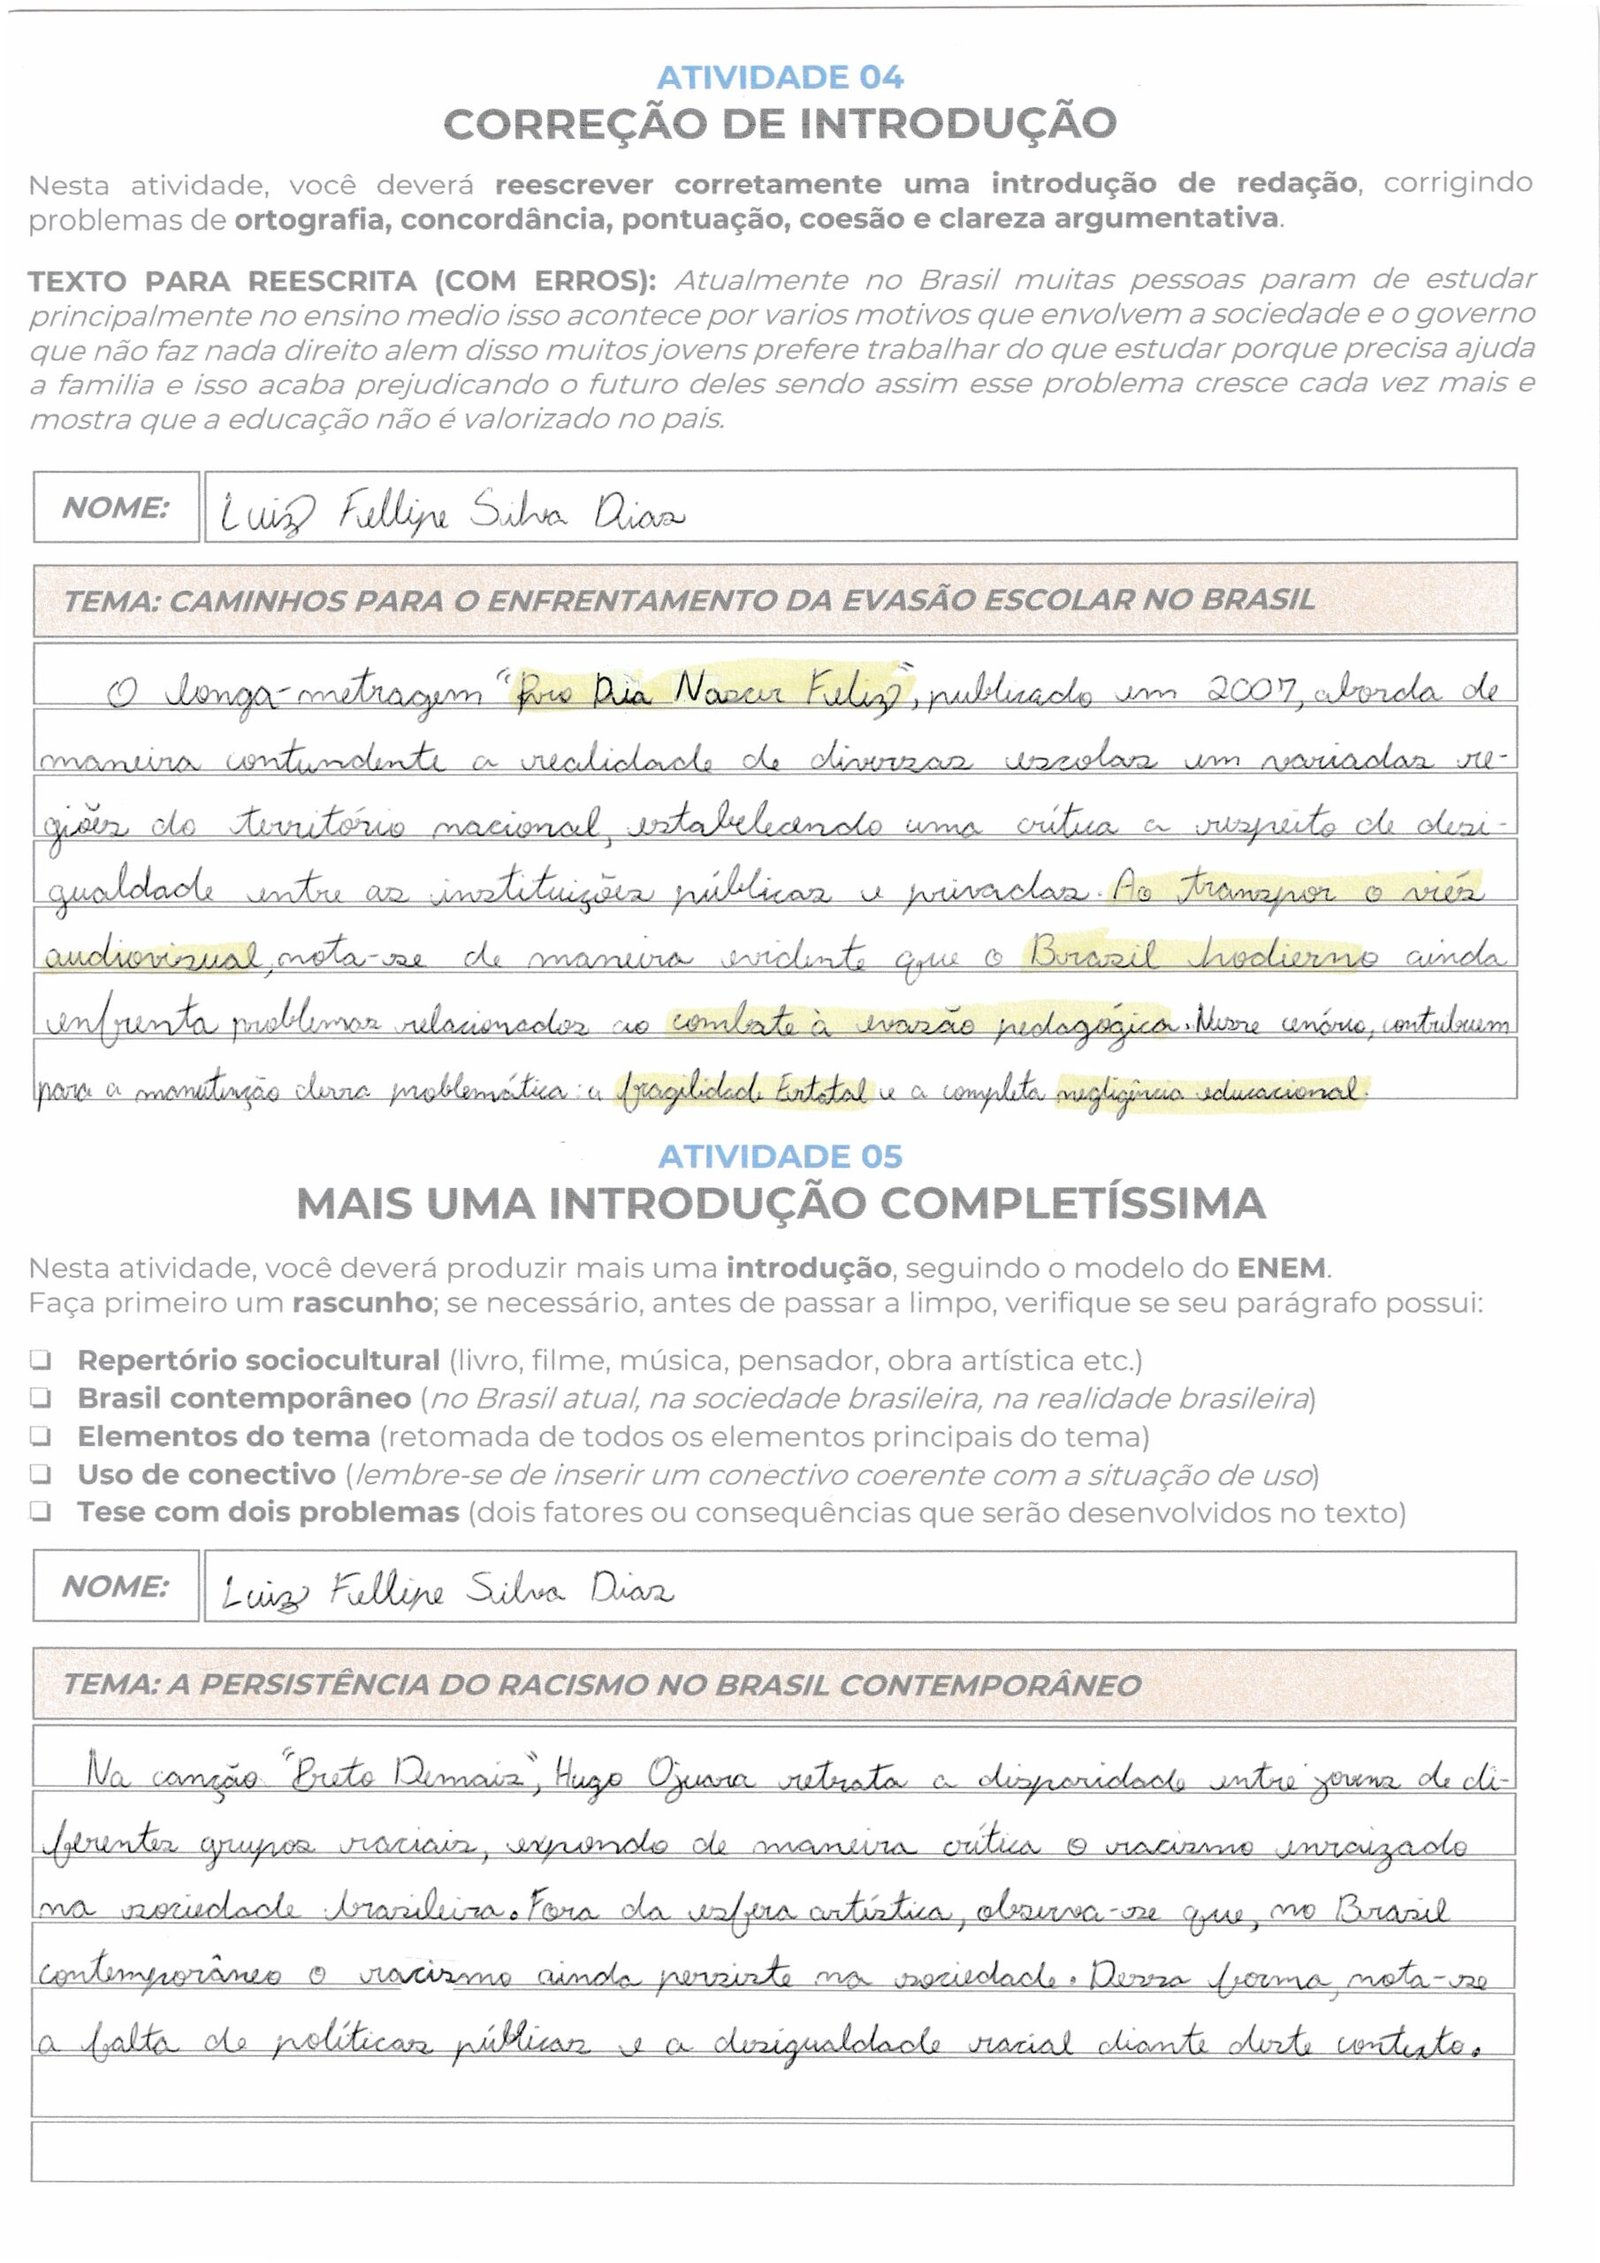 ATIVIDADE 04
CORREÇÃO DE INTRODUÇÃO
Nesta atividade, você deverá reescrever corretamente uma introdução de redação, corrigindo
problemas de ortografia, concordância, pontuação, coesão e clareza argumentativa.
TEXTO PARA REESCRITA (COM ERROS): Atualmente no Brasil muitas pessoas param de estudar
principalmente no ensino medio isso acontece por varios motivos que envolvem a sociedade e o governo
que não faz nada direito alem disso muitos jovens prefere trabalhar do que estudar porque precisa ajuda
a familia e isso acaba prejudicando o futuro deles sendo assim esse problema cresce cada vez mais e
mostra que a educação não é valorizado no pais.
NOME: Luiz Fellipe Silva Dias
TEMA: CAMINHOS PARA O ENFRENTAMENTO DA EVASÃO ESCOLAR NO BRASIL
O longa-metragem "Pro Dia Nascer Feliz", publicado em 2007, aborda de
maneira contundente a realidade de diversas escolas em variadas re-
giões do território nacional, estabelecendo uma crítica a respeito de desi-
gualdade entre as instituições públicas e privadas. Ao transpor o viés
audiovisual, nota-se de maneira evidente que o Brasil hodierno ainda
enfrenta problemas relacionados ao combate à evasão pedagógica. Nesse cenário, contribuem
para a manutenção dessa problemática: a fragilidade Estatal e a completa negligência educacional.
ATIVIDADE 05
MAIS UMA INTRODUÇÃO COMPLETÍSSIMA
Nesta atividade, você deverá produzir mais uma introdução, seguindo o modelo do ENEM.
Faça primeiro um rascunho; se necessário, antes de passar a limpo, verifique se seu parágrafo possui:
❏ Repertório sociocultural (livro, filme, música, pensador, obra artística etc.)
❏ Brasil contemporâneo (no Brasil atual, na sociedade brasileira, na realidade brasileira)
❏ Elementos do tema (retomada de todos os elementos principais do tema)
❏ Uso de conectivo (lembre-se de inserir um conectivo coerente com a situação de uso)
❏ Tese com dois problemas (dois fatores ou consequências que serão desenvolvidos no texto)
NOME: Luiz Fellipe Silva Dias
TEMA: A PERSISTÊNCIA DO RACISMO NO BRASIL CONTEMPORÂNEO
Na canção "Preto Demais", Hugo Ojuara retrata a disparidade entre jovens de di-
ferentes grupos raciais, expondo de maneira crítica o racismo enraizado
na sociedade brasileira. Fora da esfera artística, observa-se que, no Brasil
contemporâneo o racismo ainda persiste na sociedade. Dessa forma, nota-se
a falta de políticas públicas e a desigualdade racial diante deste contexto.